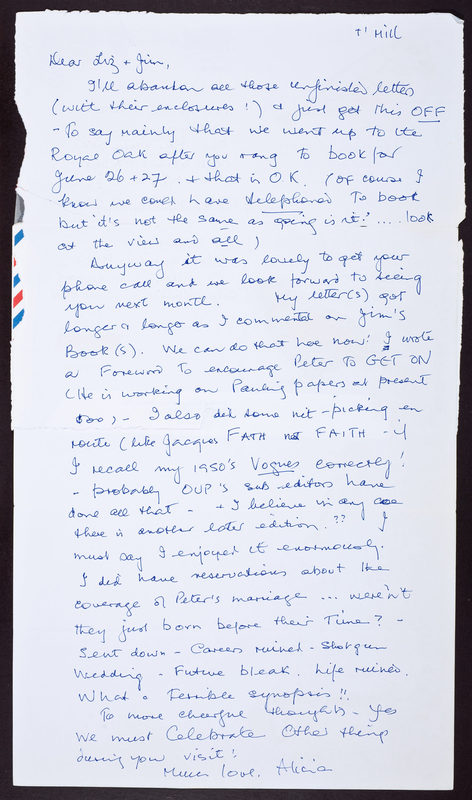 T' Mill
Dear Liz + Jim,
I'll abandon all those unfinished letter
(with their enclosures!) & just get this OFF
- To say mainly that we went up to the
Royal Oak after you rang to book for
June 26 + 27. & that is O.K. (of course I
know we could have telephoned to book
but it's not the same as going is it? .... look
at the view and all)
Anyway it was lovely to get your
phone call and we look forward to seeing
you next month. My letter(s) got
longer & longer as I commented on Jim's
Book(s). We can do that here now! I wrote
a Foreword to encourage Peter TO GET ON
(He is working on Pauling papers at present
too) - I also did some nit-picking en
route (like Jacques FATH not FAITH - if
I recall my 1950's Vogues correctly!
- probably OUP's sub editors have
done all that - + I believe in any case
there is another later edition.?? I
must say I enjoyed it enormously.
I did have reservations about the
coverage of Peter's marriage ... weren't
they just born before their Time? -
Sent down - Careers ruined - Shotgun
Wedding - Future bleak. Life ruined.
What a Terrible synopsis!!
To more cheerful thoughts - Yes
We must Celebrate Other things
during your visit!
Much love. Alicia